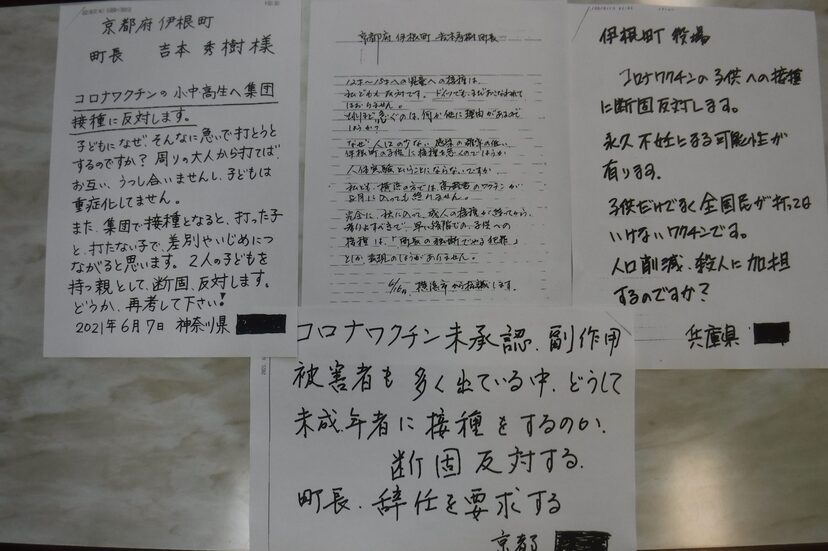 京都府伊根町
町長 吉本秀樹様
コロナワクチンの小中高生へ集団
接種に反対します。
子どもになぜ、そんなに急いで打とうと
するのですか? 周りの大人から打てば、
お互い、うつし合いませんし、子どもは
重症化してません。
また、集団で接種となると、打った子
と、打たない子で、差別やいじめにつ
ながると思います。2人の子どもを
持つ親として、断固、反対します。
どうか、再考して下さい!
2021年6月7日 神奈川県
京都府伊根町 吉本秀樹町長
12才〜15才への児童への接種は、
私どもも反対です。ドイツでも、まだおこなわれて
はおりません。
それほど急ぐのは、何か他に理由があるので
しょうか?
なぜ人口の少ない、感染の確率の低い、
伊根町の子供に接種を急ぐのでしょうか
人体実験ということにならないですか
私ども、横浜の方では、高齢者のワクチンが
8月になっても終りません。
完全に、秋になって、成人の接種が終ってから、
考りょすべきで、早い段階での、子供への
接種は、「町長の独断でやる犯罪」
としか表現のしようがありません。
横浜市から抗議します。
伊根町役場
コロナワクチンの子供への接種
に断固反対します。
永久不妊になる可能性が
有ります。
子供だけでなく全国民が打っては
いけないワクチンです。
人口削減、殺人に加担
するのですか?
兵庫県
コロナワクチン未承認、副作用
被害者も多く出ている中、どうして
未成年者に接種をするのか、
断固反対する、
町長、辞任を要求する
京都